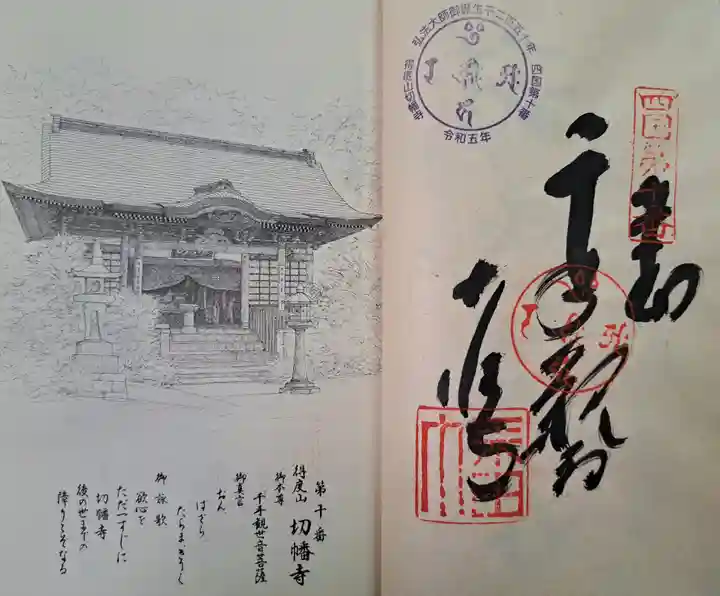 弘法大師御誕生千二百五十年
四国第十番
得度山切幡寺
令和五年
四国第十番
奉
千手
切幡寺
第十番
得度山 切幡寺
御本尊
千手観世音菩薩
御真言
おん
ばざら
たらま きりく
御詠歌
欲心を
ただ一すじに
切幡寺
後の世までの
障りとぞなる